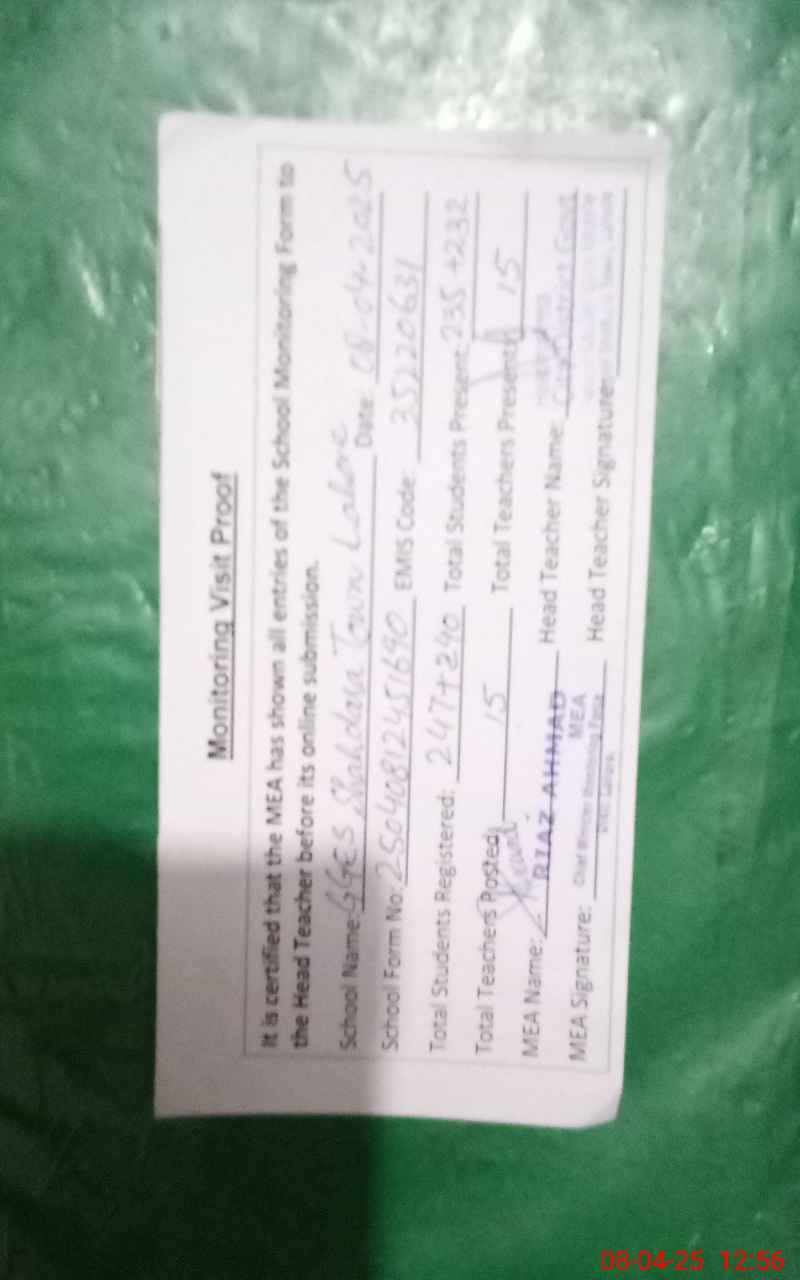 Monitoring Visit Proof
It is certified that the MEA has shown all entries of the School Monitoring Form to
the Head Teacher before its online submission.
School Name: GGES Shahdara Town Lahore Date: 08-04-2025
School Form No: 25040812451690 EMIS Code: 35220631
Total Students Registered: 247+290 Total Students Present: 235+232
Total Teachers Posted: 15 Total Teachers Present: 15
MEA Name: RIAZ AHMAD Head Teacher Name: City District Govt
MEA
MEA Signature: Chief Minister Monitoring Force Head Teacher Signature:
Lahore
08-04-25 12:56